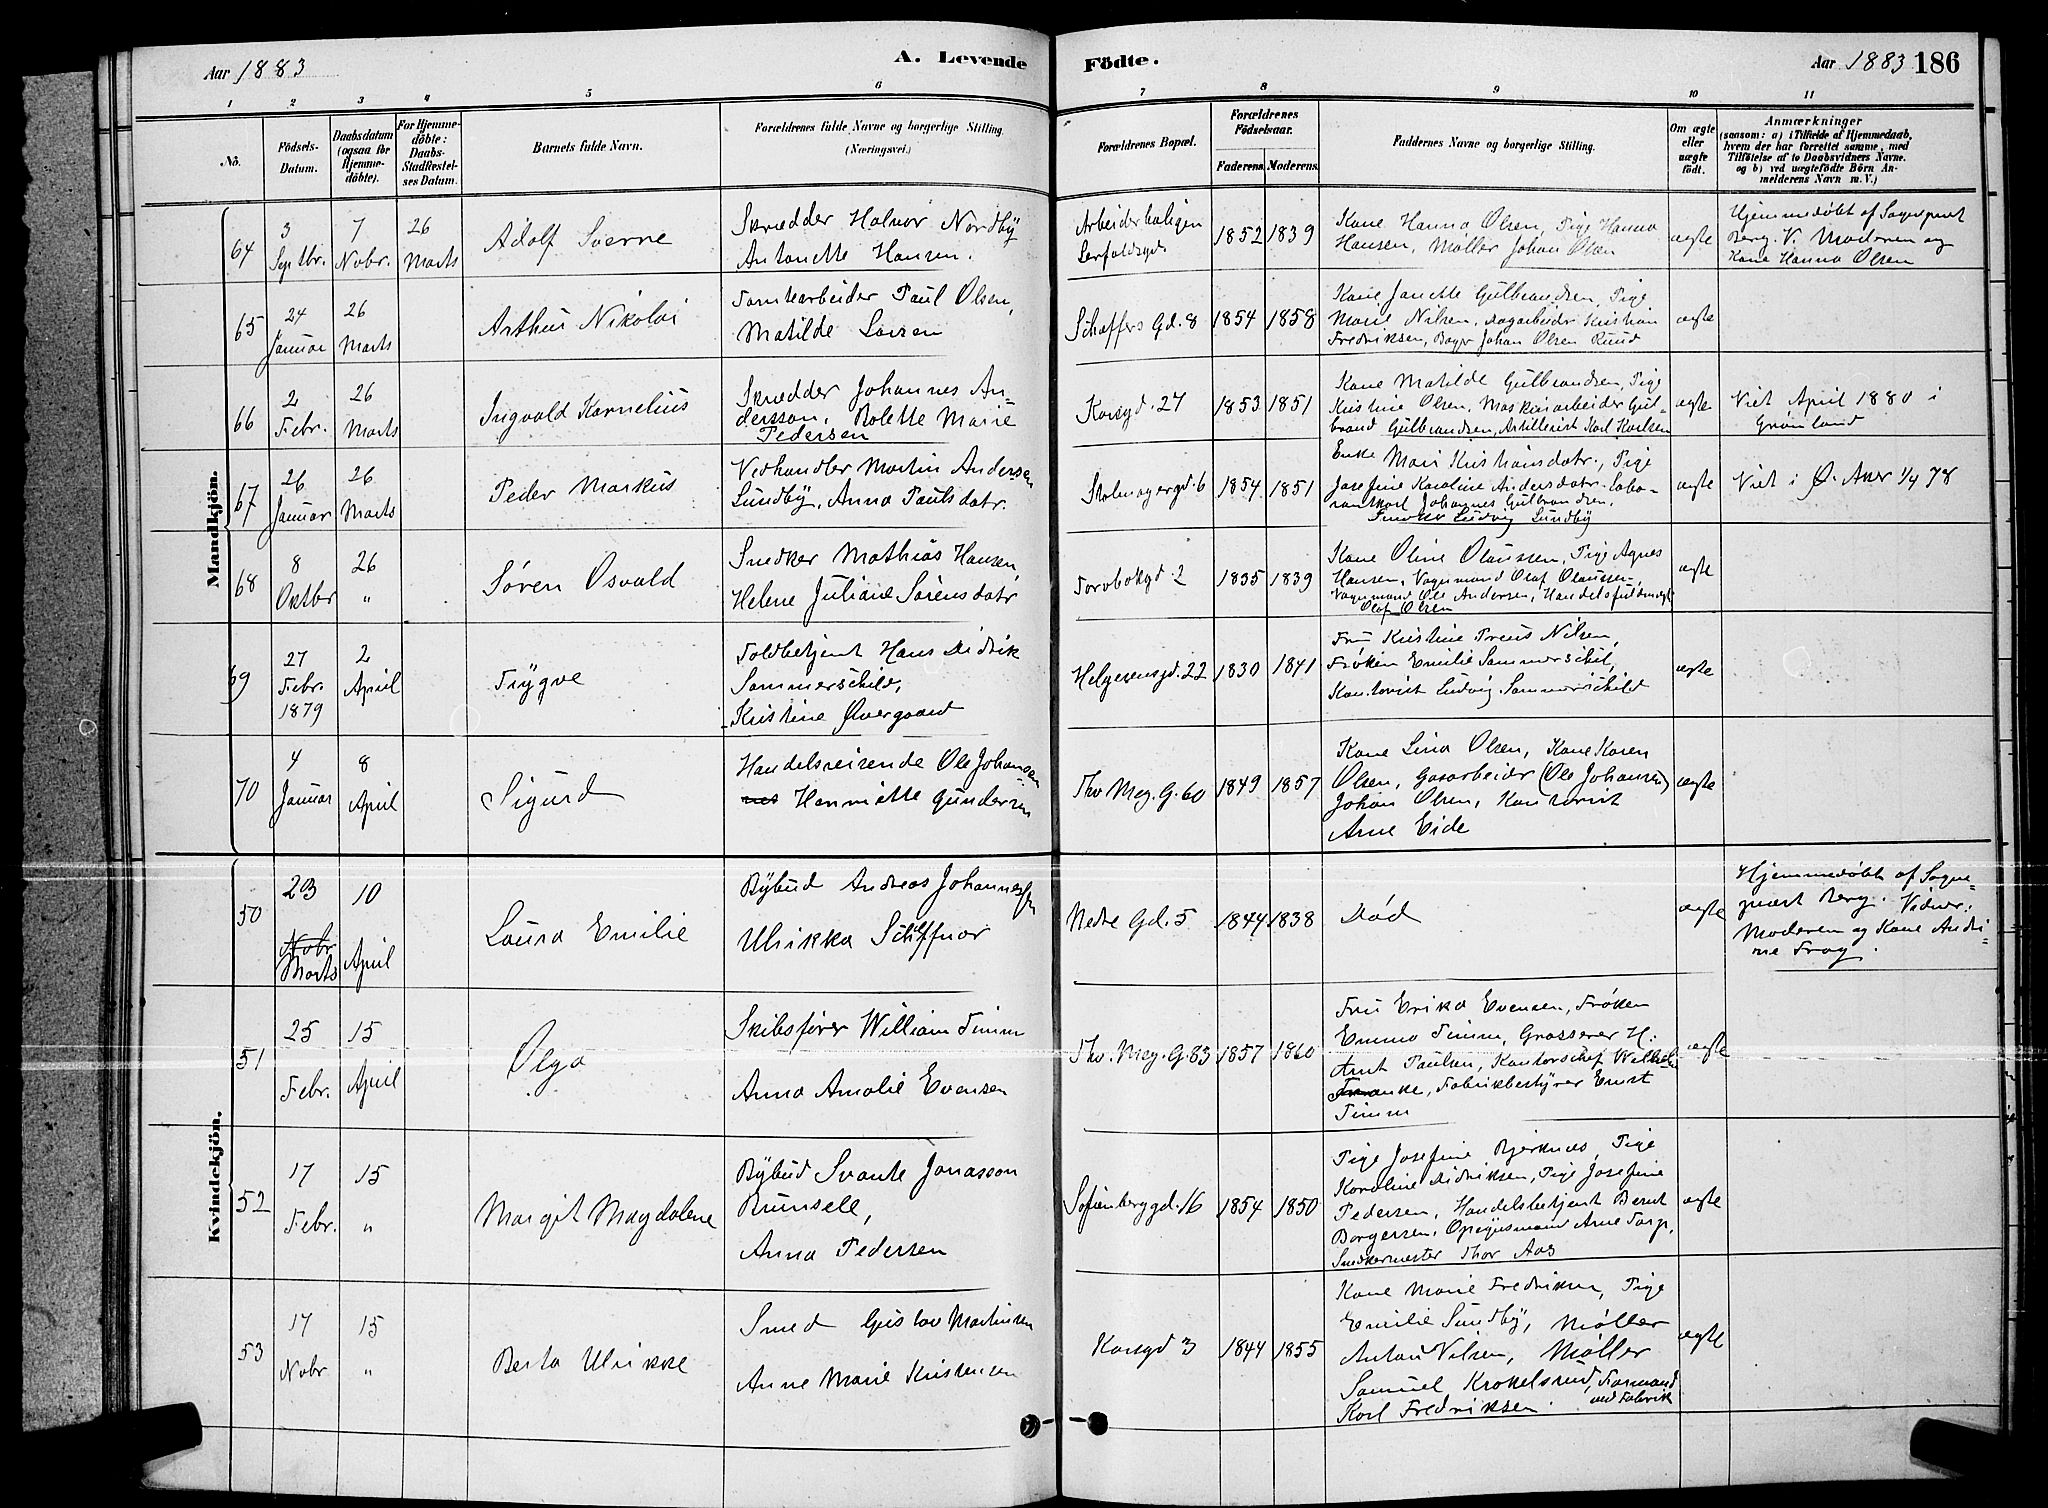 Aar 1883
A. Levende
Födte.
Aar 1883 186
1 2 3 4 5 6 7 8 9 10 11
No.
Födsels-
Datum.
Daabsdatum
(ogsaa for
Hjemme-
döbte).
For Hjemme-
döbte:
Daabs-
Stadfæstel-
ses Datum.
Barnets fulde Navn.
Forældrenes fulde Navne og borgerlige Stilling.
(Næringsvei.)
Forældrenes Bopæl.
Forældrenes
Födselsaar.
Faderens. Moderens.
Faddernes Navne og borgerlige Stilling.
Om ægte
eller
uægte
födt.
Anmærkninger
(saasom: a) i Tilfælde af Hjemmedaab,
hvem der har forrettet samme, med
Tilföielse af to Daabsvidners Navne.
og b) ved uægtefödte Börn An-
melderens Navn m. V.)
Mandkjön.
64
3
Septbr.
7
Nobr.
26
Marts
Adolf Sverre
Skrædder Halvor Nordby
Antonette Hansen.
Arbeiderboligen
1852 1839
Kone Hanna Olsen, Pige Hanna
Hansen, Møller Johan Olsen
ægte
Hjemmedøbt af Sognepræst
Berg. V. Moderen og
Kone Hanna Olsen
65
24
Januar
26
Marts
Arthur Nikolai
Tomtearbeider Paul Olsen,
Matilde Larsen
Schaffers Gd. 8
1854 1858
Kone Janette Gulbrandsen, Pige
Marie Nilsen, Dagarbeider Kristian
Fredriksen, Bager Johan Olsen Rund
ægte
66
2
Febr.
26
Marts
Ingvald Kornelius
Skrædder Johannes An-
dersson, Bolette Marie
Pedersen
Korsgd. 27
1853 1851
Kone Matilde Gulbrandsen, Pige
Kristine Olsen, Maskinarbeider Gul-
brand Gulbrandsen, Artillerist Karl Karlsen
ægte
Viet April 1880 i
Grønland
67
26
Januar
26
Marts
Peder Markus
Vedhandler Martin Andersen
Lundby, Anna Paulsdatr.
Stolmagergd. 6
1854 1851
Enke Mari Kristiansdatr., Pige
Josefine Karoline Andersdatr. Labo-
rantkarl Johannes Gulbrandsen.
Snedker Ludvig Lundby
ægte
Viet i Ø. Aker 1/4 78
68
8
Oktbr
26
"
Søren Osvald
Snedker Mathias Hansen,
Helene Juliane Sørensdatr
Torvbakgd. 2
1835 1839
Kone Oline Olaussen, Pige Agnes
Hansen, Vognmand Olaf Olaussen,
Vognmand Ole Andersen, Handelsfuldmægt
Olaf Olsen
ægte
69
27
Febr.
1879
2
April
Trygve
Toldbetjent Hans Didrik
Sommerschild,
Kristine Overgaard
Helgesensgd. 22
1830 1841
Fru Kristine Preus Nilsen,
Frøken Emilie Sommerschild,
Kontorist Ludvig Sommerschild
ægte
70
4
Januar
8
April
Sigurd
Handelsreisende Ole Johansen
Henriette Gundersen
Thv. Mey. G. 60
1849 1857
Kone Lina Olsen, Kone Karen
Olsen, Gasarbeider (Ole Johansen)
Johan Olsen, Kontorist
Arne Eide
ægte
Kvindekjön.
50
23
Nobr
Marts
10
April
Laura Emilie
Bybud Andreas Johannessen
Ulrikka Schiffnar
Nedre Gd. 5
1844 1838
Død
ægte
Hjemmedøbt af Sogne-
præst Berg. Vidner:
Moderen og Kone Andri-
ne Frog.
51
25
Febr.
15
April
Olga
Skibsfører William Timm
Anna Amalie Evensen
Thv. Mey. G. 83
1857 1860
Fru Erika Evensen, Frøken
Emma Timm, Grosserer H.
Arnt Paulsen, Kontorchef Wilhelm
Franke, Fabrikbestyrer Ernst
Timm
ægte
52
17
Febr.
15
"
Margit Magdalene
Bybud Svante Jonasson
Brunsele,
Anna Pedersen
Sofienberggd. 16
1854 1850
Pige Josefine Bjerknes, Pige
Karoline Didriksen, Pige Josefine
Pedersen, Handelsbetjent Bernt
Borgersen, Opsynsmand Arne Torp,
Snedkermester Thor Aas
ægte
53
17
Nobr
15
"
Berta Ulrikke
Smed Gustav Martinsen
Anne Marie Kristensen
Korsgd 3
1844 1855
Kone Marie Fredriksen, Pige
Emilie Sundby, Møller
Anton Nilsen, Møller
Samuel Krokelsrud, Formand
ved Fabrik
Karl Fredriksen.
ægte